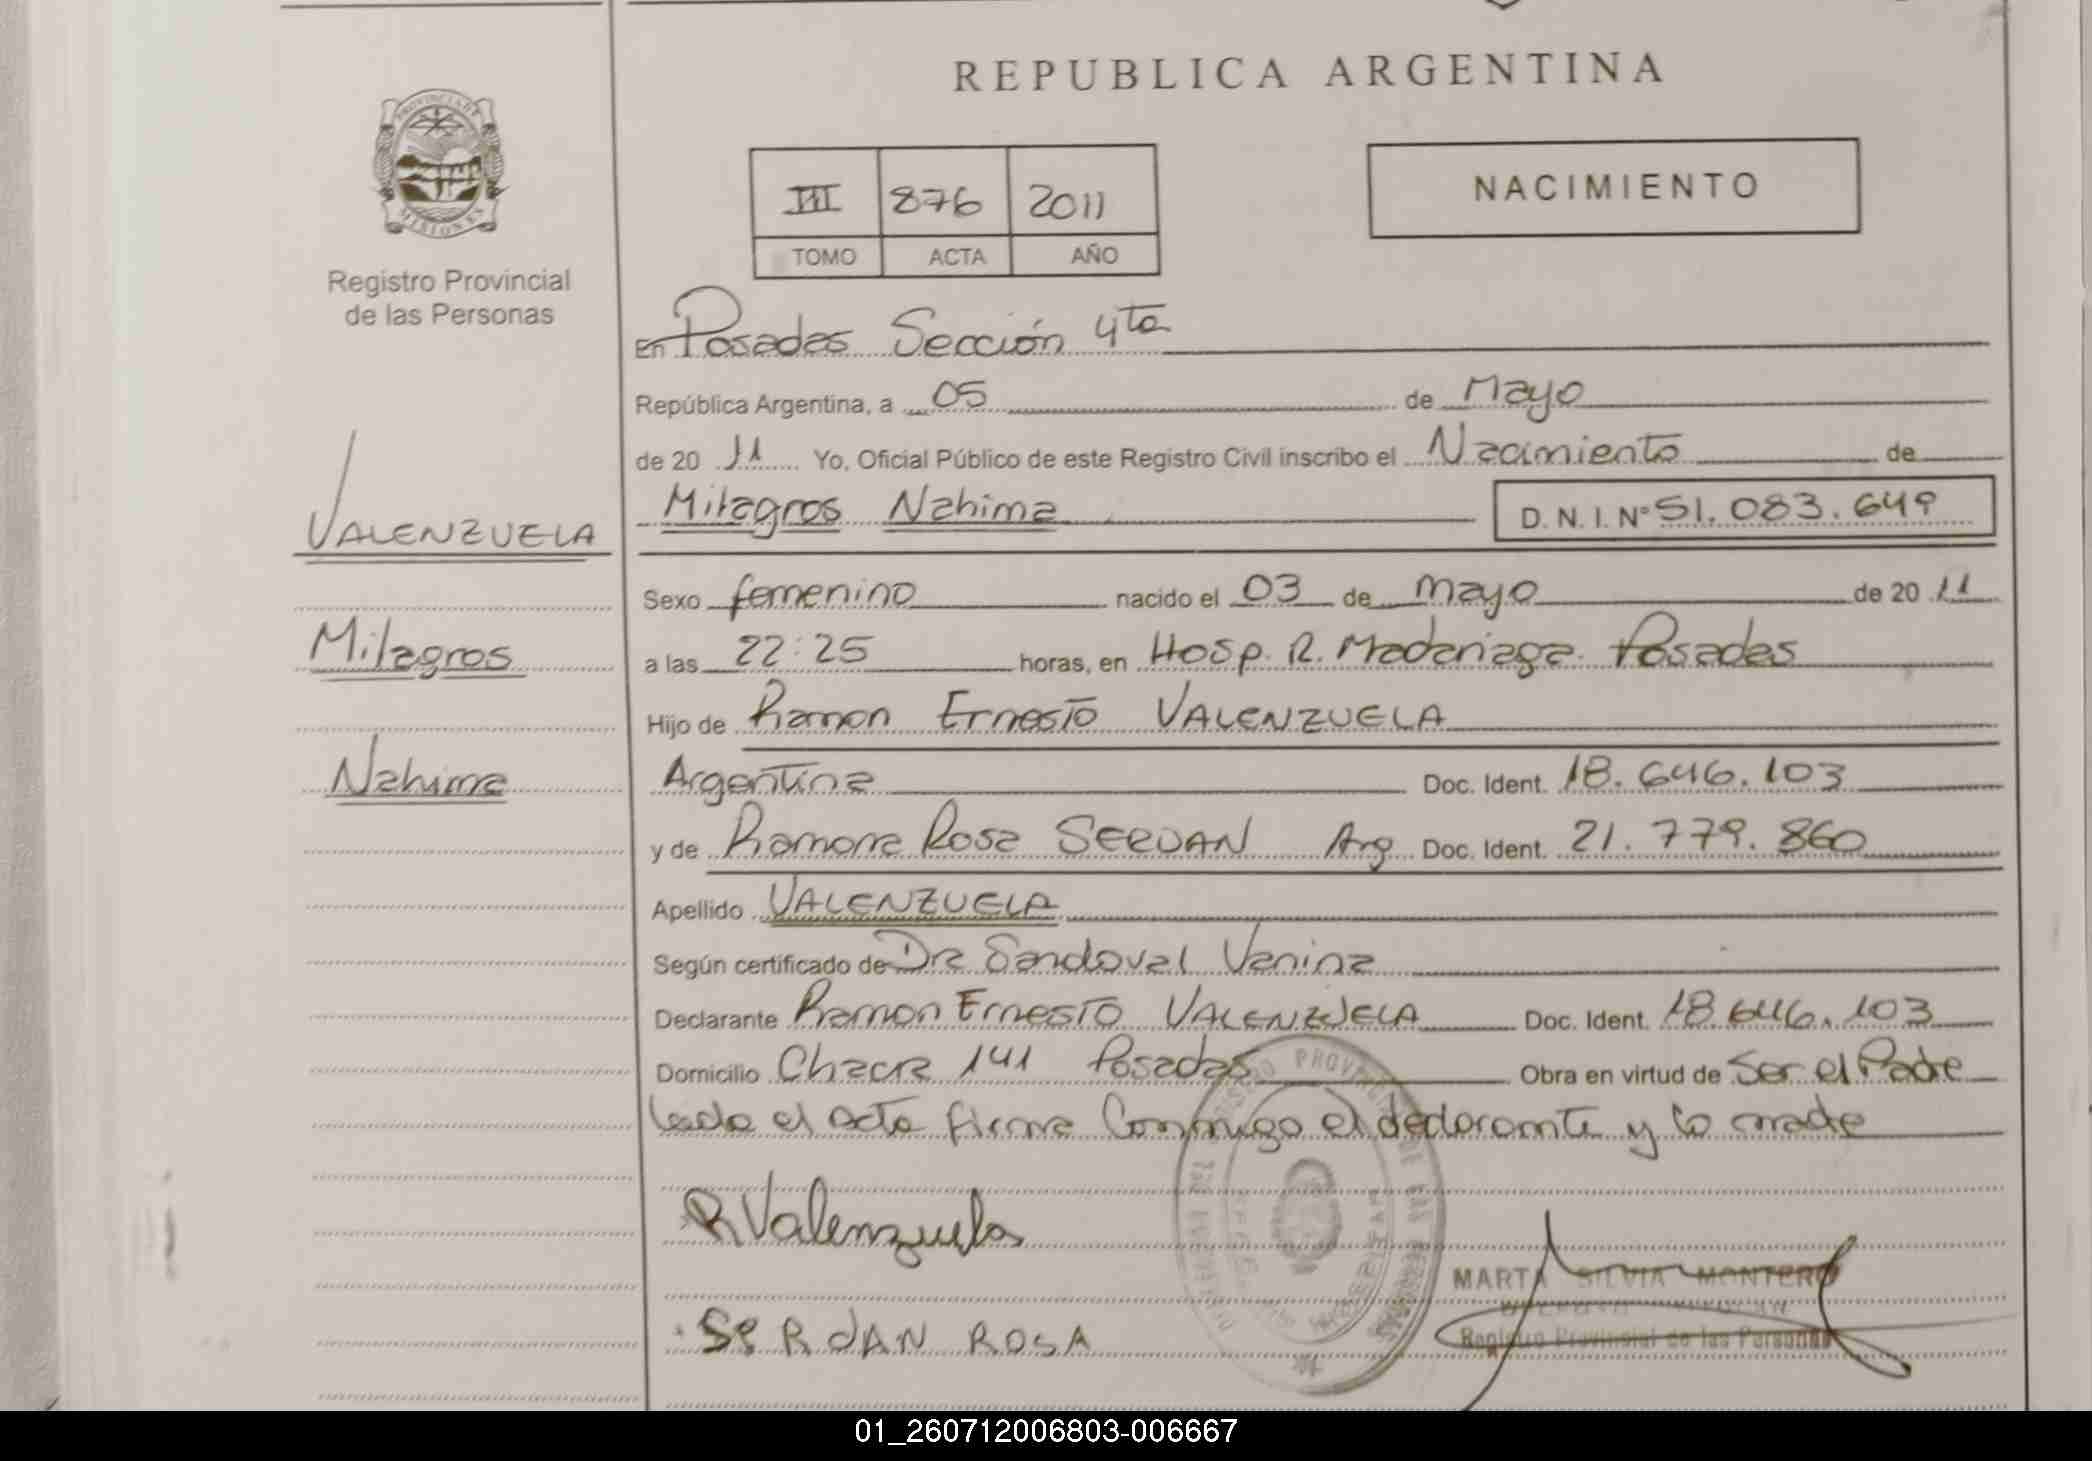 REPUBLICA ARGENTINA
PROVINCIA DE
MISIONES
Registro Provincial
de las Personas
III 876 2011
TOMO ACTA AÑO
NACIMIENTO
En Posadas Sección 4ta
República Argentina, a 05 de Mayo
de 20 11 Yo, Oficial Público de este Registro Civil inscribo el Nacimiento de
Milagros Nahima D. N. I. Nº 51.083.649
VALENZUELA
Milagros
Nahima
Sexo femenino nacido el 03 de mayo de 20 11
a las 22:25 horas, en Hosp. R. Madariaga. Posadas
Hijo de Ramon Ernesto VALENZUELA
Argentina Doc. Ident. 18.646.103
y de Ramona Rosa SERDAN Arg. Doc. Ident. 21.779.860
Apellido VALENZUELA
Según certificado de Dra Sandoval Vanina
Declarante Ramon Ernesto VALENZUELA Doc. Ident. 18.646.103
Domicilio Chacra 141 Posadas Obra en virtud de Ser el Padre
leida el acta firma Conmigo el declarante y la madre
R Valenzuela
SeRdAN ROSA
MARTA SILVIA MONTERO
Registro Provincial de las Personas
01_260712006803-006667